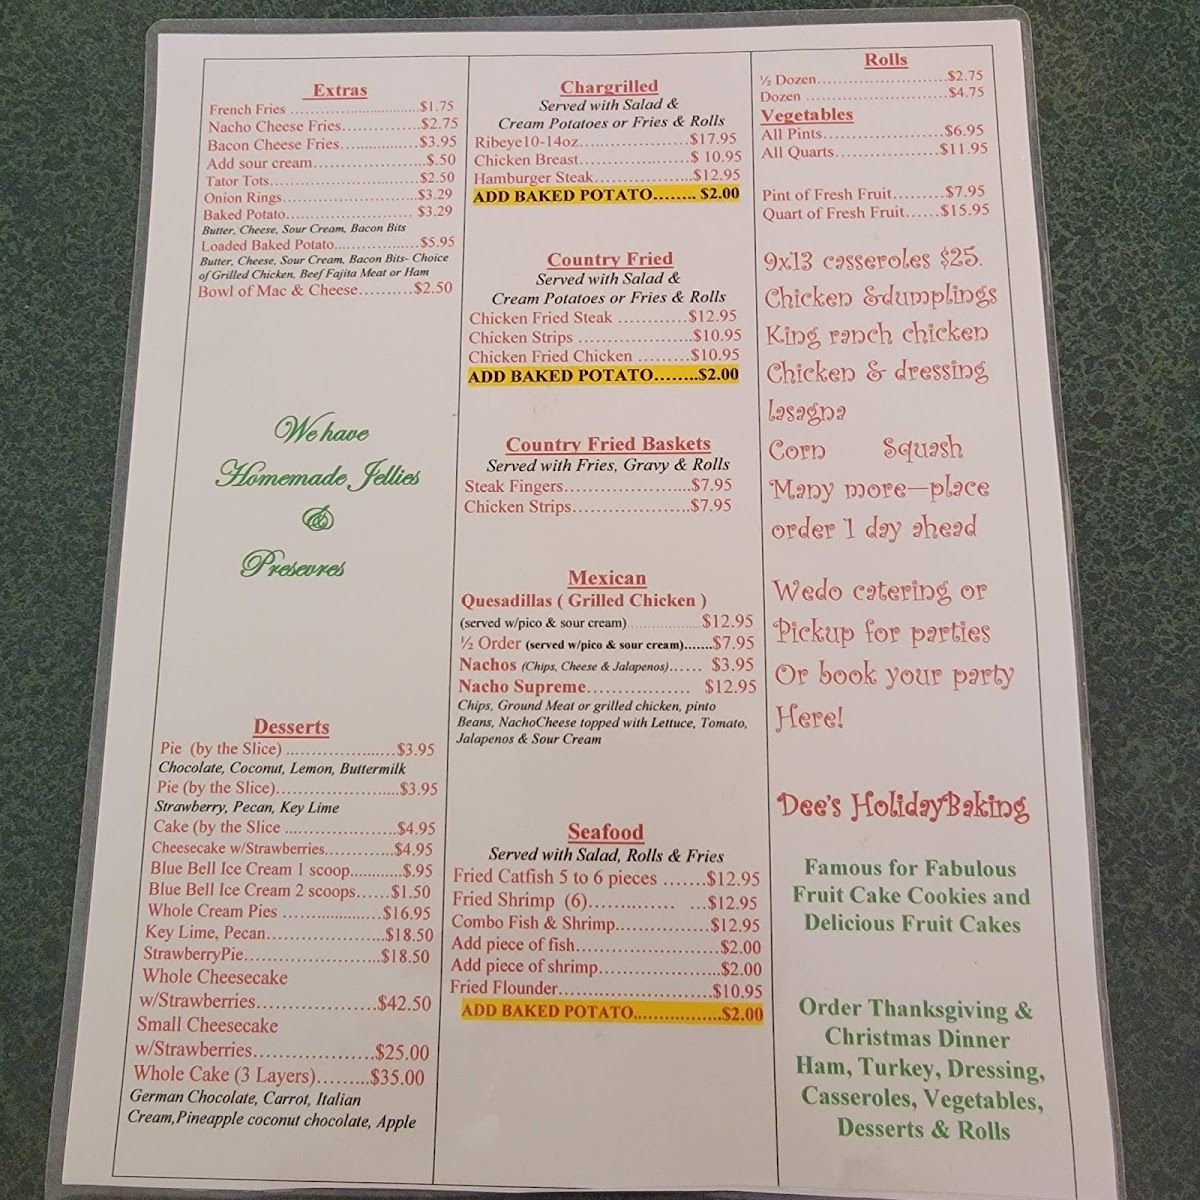 Extras
French Fries ............................$1.75
Nacho Cheese Fries...............$2.75
Bacon Cheese Fries...............$3.95
Add sour cream.....................$.50
Tator Tots...............................$2.50
Onion Rings...........................$3.29
Baked Potato.......................... $3.29
Butter, Cheese, Sour Cream, Bacon Bits
Loaded Baked Potato..................$5.95
Butter, Cheese, Sour Cream, Bacon Bits- Choice
of Grilled Chicken, Beef Fajita Meat or Ham
Bowl of Mac & Cheese..........$2.50
We have
Homemade Jellies
&
Presevres
Desserts
Pie (by the Slice) .....................$3.95
Chocolate, Coconut, Lemon, Buttermilk
Pie (by the Slice).......................$3.95
Strawberry, Pecan, Key Lime
Cake (by the Slice .....................$4.95
Cheesecake w/Strawberries.............$4.95
Blue Bell Ice Cream 1 scoop...........$.95
Blue Bell Ice Cream 2 scoops......$1.50
Whole Cream Pies ...................$16.95
Key Lime, Pecan......................$18.50
StrawberryPie..........................$18.50
Whole Cheesecake
w/Strawberries......................$42.50
Small Cheesecake
w/Strawberries......................$25.00
Whole Cake (3 Layers).........$35.00
German Chocolate, Carrot, Italian
Cream,Pineapple coconut chocolate, Apple
Chargrilled
Served with Salad &
Cream Potatoes or Fries & Rolls
Ribeye10-14oz.....................$17.95
Chicken Breast.....................$ 10.95
Hamburger Steak...................$12.95
ADD BAKED POTATO........ $2.00
Country Fried
Served with Salad &
Cream Potatoes or Fries & Rolls
Chicken Fried Steak ............$12.95
Chicken Strips .....................$10.95
Chicken Fried Chicken .........$10.95
ADD BAKED POTATO........$2.00
Country Fried Baskets
Served with Fries, Gravy & Rolls
Steak Fingers.......................$7.95
Chicken Strips.....................$7.95
Mexican
Quesadillas ( Grilled Chicken )
(served w/pico & sour cream)....................$12.95
½ Order (served w/pico & sour cream).......$7.95
Nachos (Chips, Cheese & Jalapenos)...... $3.95
Nacho Supreme................... $12.95
Chips, Ground Meat or grilled chicken, pinto
Beans, NachoCheese topped with Lettuce, Tomato,
Jalapenos & Sour Cream
Seafood
Served with Salad, Rolls & Fries
Fried Catfish 5 to 6 pieces .......$12.95
Fried Shrimp (6).............. ...$12.95
Combo Fish & Shrimp................$12.95
Add piece of fish.........................$2.00
Add piece of shrimp.....................$2.00
Fried Flounder...........................$10.95
ADD BAKED POTATO.................$2.00
Rolls
½ Dozen.........................$2.75
Dozen ...........................$4.75
Vegetables
All Pints.......................$6.95
All Quarts....................$11.95
Pint of Fresh Fruit..........$7.95
Quart of Fresh Fruit......$15.95
9x13 casseroles $25.
Chicken &dumplings
King ranch chicken
Chicken & dressing
lasagna
Corn Squash
Many more—place
order 1 day ahead
Wedo catering or
Pickup for parties
Or book your party
Here!
Dee's HolidayBaking
Famous for Fabulous
Fruit Cake Cookies and
Delicious Fruit Cakes
Order Thanksgiving &
Christmas Dinner
Ham, Turkey, Dressing,
Casseroles, Vegetables,
Desserts & Rolls